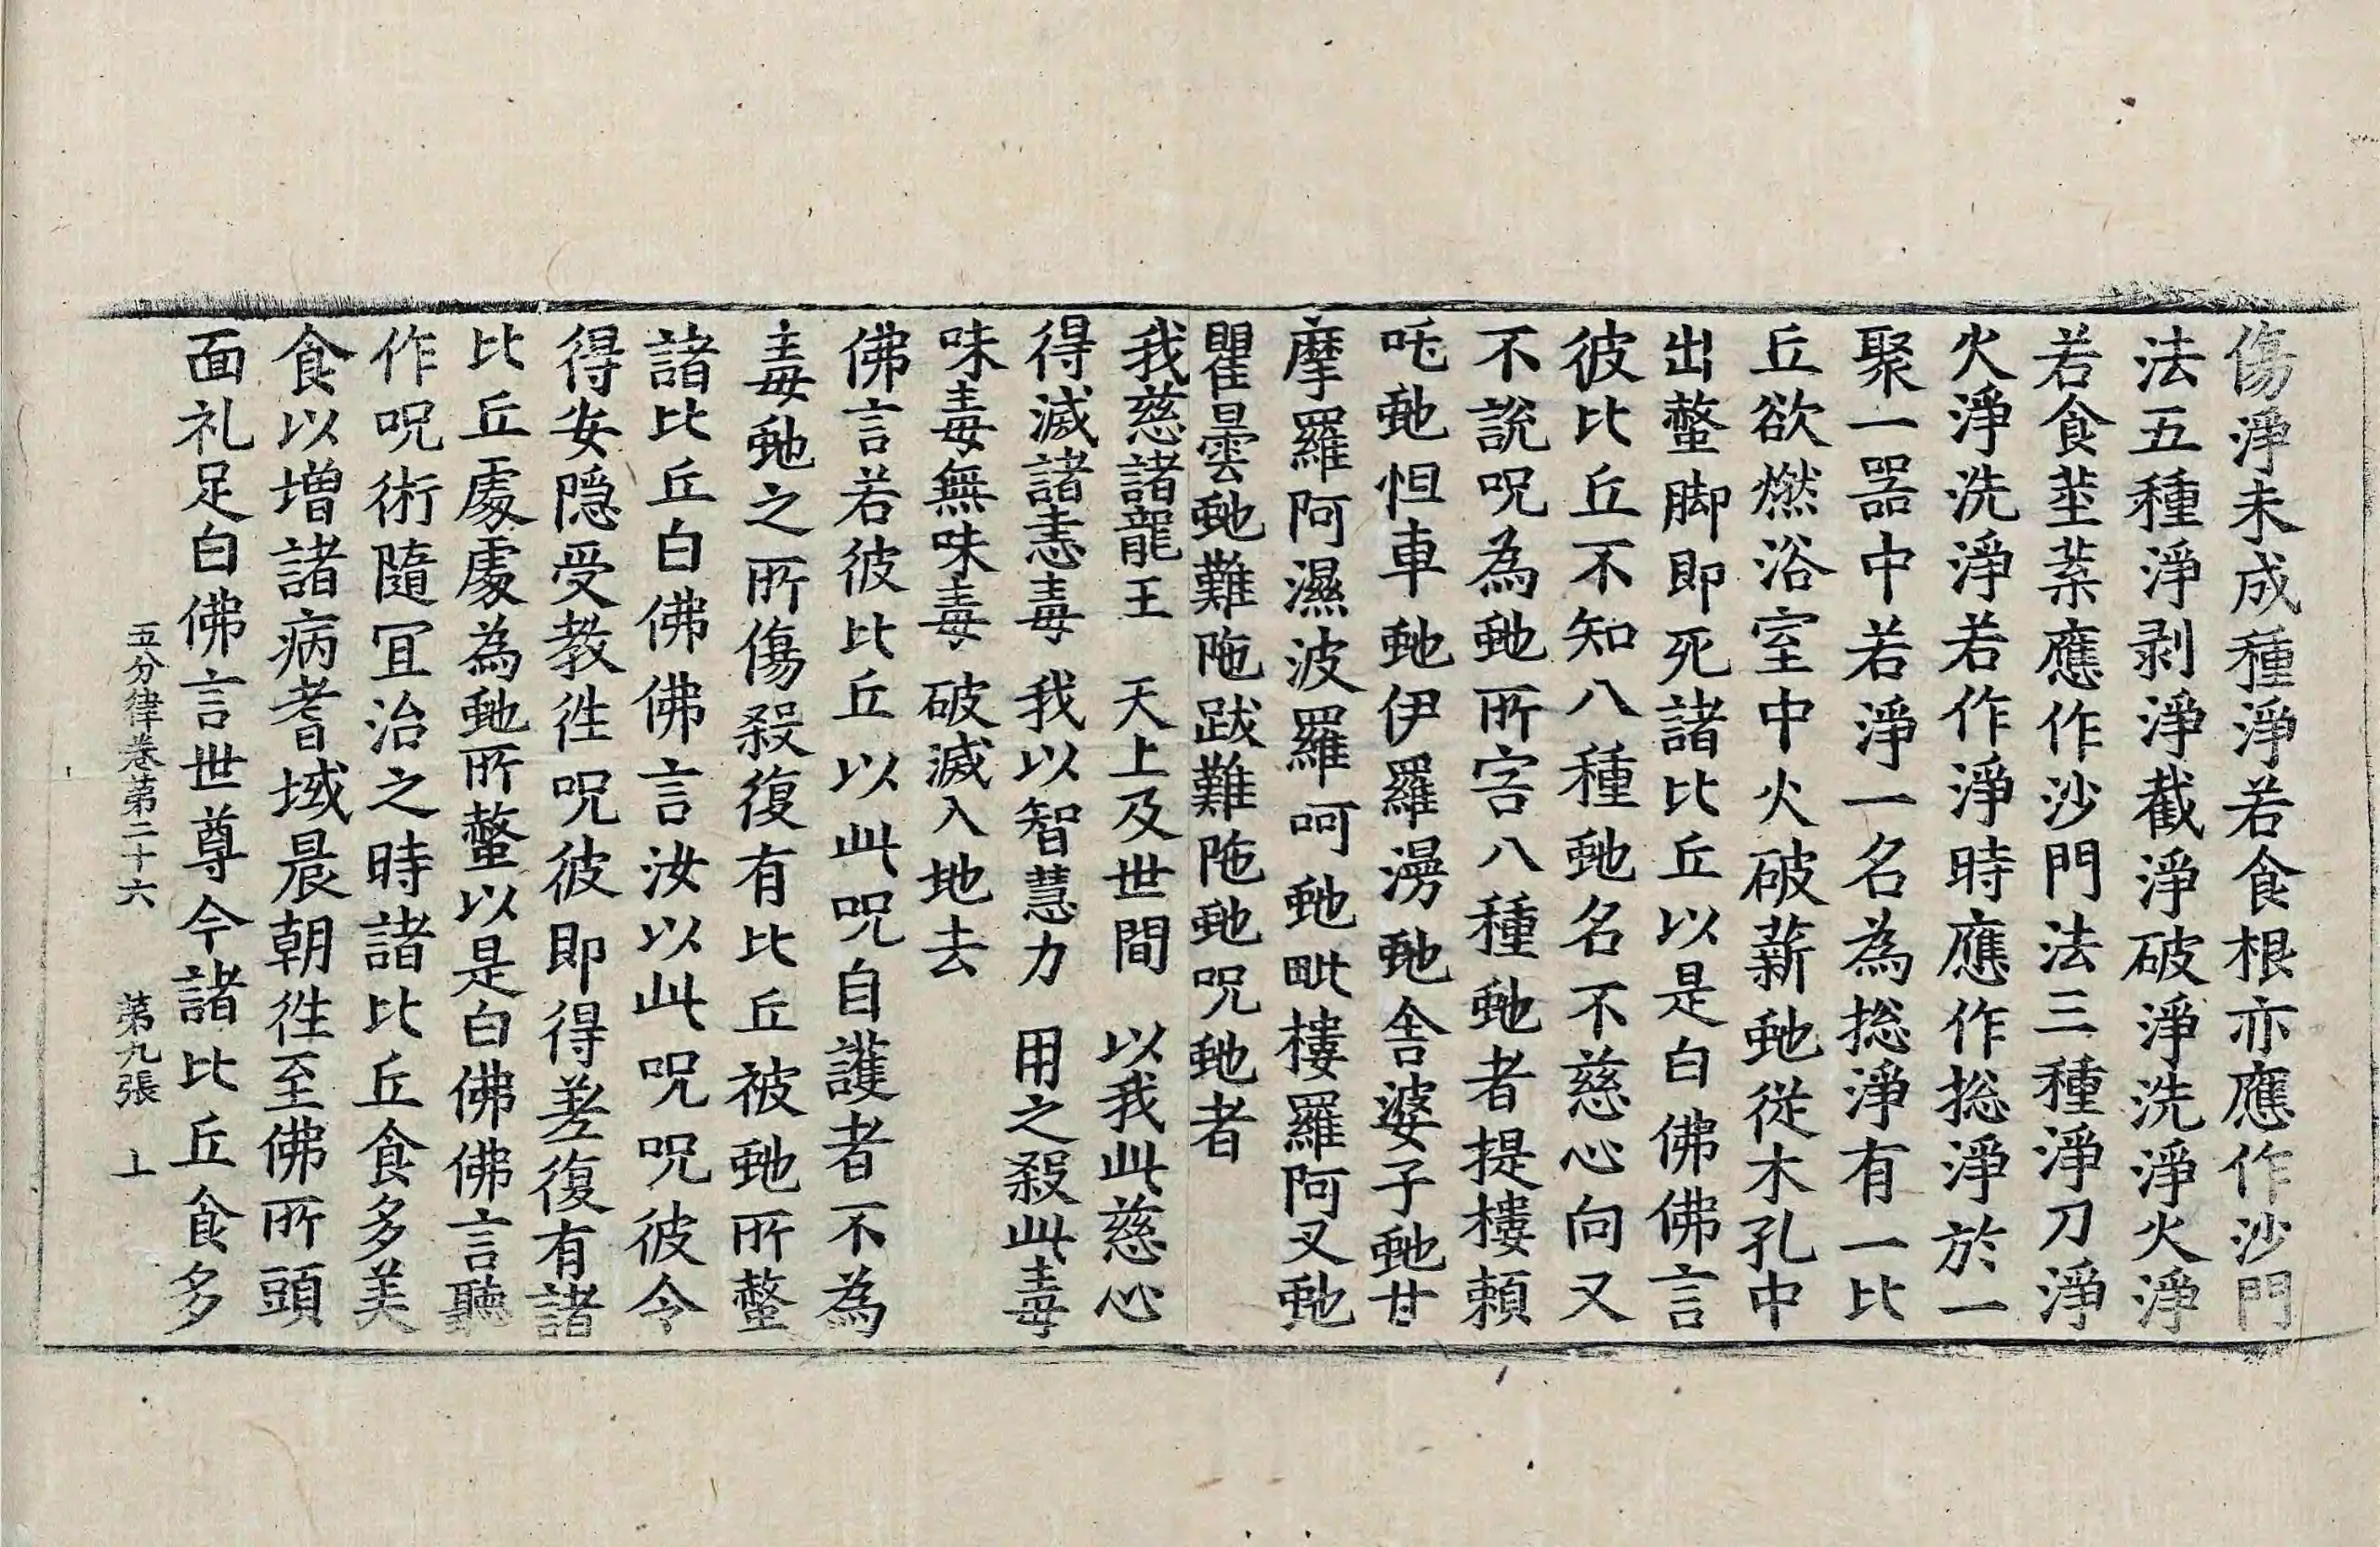 傷淨未成種淨若食根亦應作沙門
法五種淨剥淨截淨破淨洗淨火淨
若食莖葉應作沙門法三種淨刀淨
火淨洗淨若作淨時應作捴淨於一
聚一器中若淨一名為捴淨有一比
丘欲燃浴室中火破薪虵從木孔中
出螫脚即死諸比丘以是白佛佛言
彼比丘不知八種虵名不慈心向又
不說呪為虵所害八種虵者提樓頼
吒虵怛車虵伊羅漫虵舎婆子虵甘
摩羅阿濕波羅呵虵毗樓羅阿叉虵
瞿曇虵難陁跋難陁虵呪虵者
我慈諸龍王　天上及世間　以我此慈心
得滅諸恚毒　我以智慧力　用之殺此毒
味毒無味毒　破滅入地去
佛言若彼比丘以此呪自護者不為
毒虵之所傷殺復有比丘被虵所螫
諸比丘白佛佛言汝以此呪呪彼令
得安隠受教徃呪彼即得差復有諸
比丘處處為虵所螫以是白佛佛言聽
作呪術隨冝治之時諸比丘食多美
食以増諸病耆域晨朝徃至佛所頭
面礼足白佛言世尊今諸比丘食多
五分律卷第二十六　第九張　上